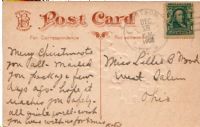 Post Card
For Correspondence
Merry Christmas to
you all. Mailed
you package few
days ago hope it
reaches you safely.
all quite well. wish
you
DEC
Miss Lillie B. Wood
West Salem
Ohio